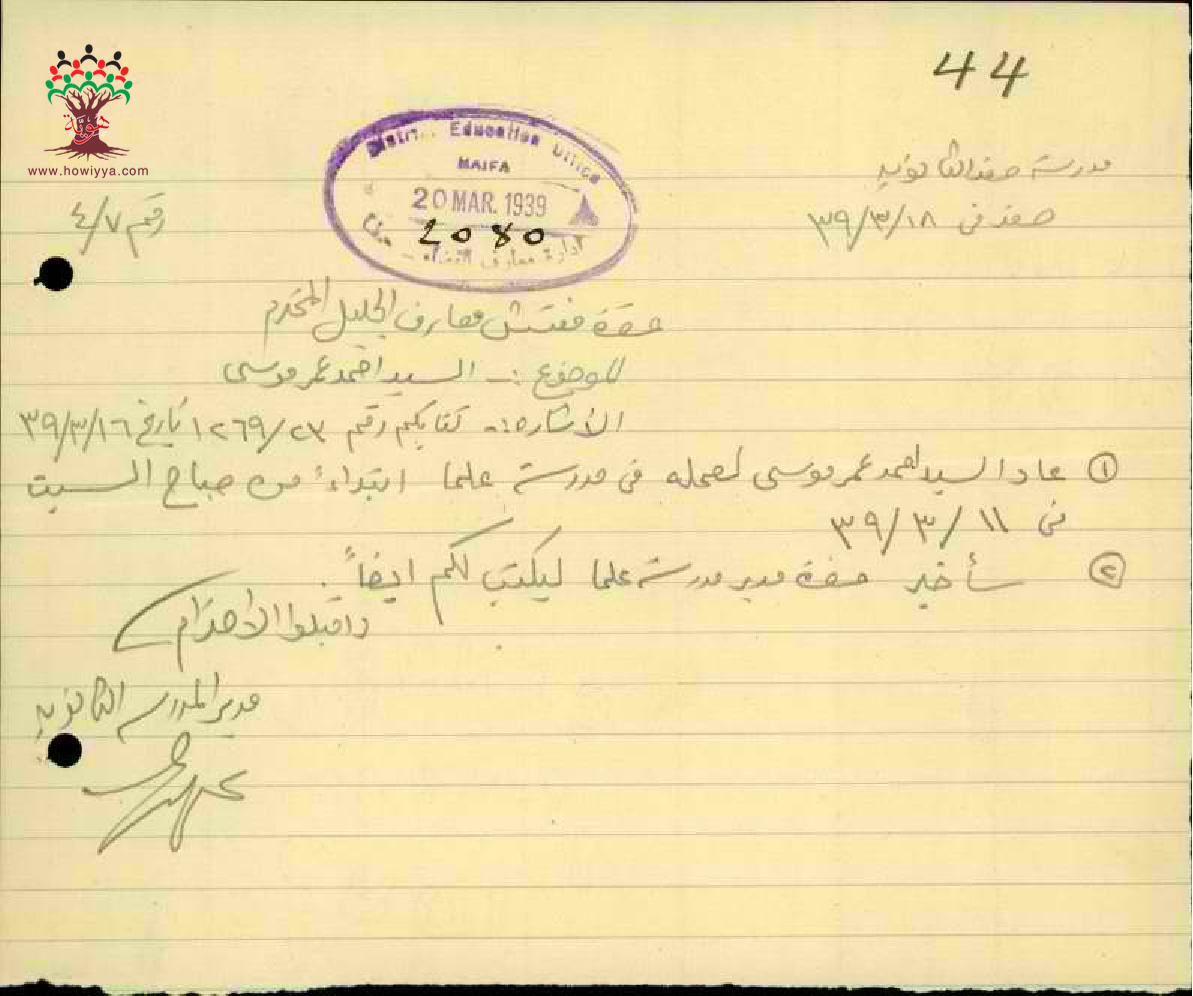 44
هوية
www.howiyya.com
District Education Office
HAIFA
20 MAR. 1939
2080
ادارة معارف القضاء
مدرسة صفد الثانويه
صفد في ٣٩/٣/١٨
رقم ٤/٧
حضرة مفتش معارف الجليل المحترم
الموضوع :- السيد احمد عمر موسى
الاشاره :- كتابكم رقم ١٢٦٩/٢٣ تاريخ ٣٩/٣/١٦
① عاد السيد احمد عمر موسى لعمله في مدرسة علما ابتداءً من صباح السبت
في ٣٩/٣/١١
② سأخبر حضرة مدير مدرسة علما ليكتب لكم ايضاً .
واقبلوا الاحترام
مدير المدرسه الثانويه